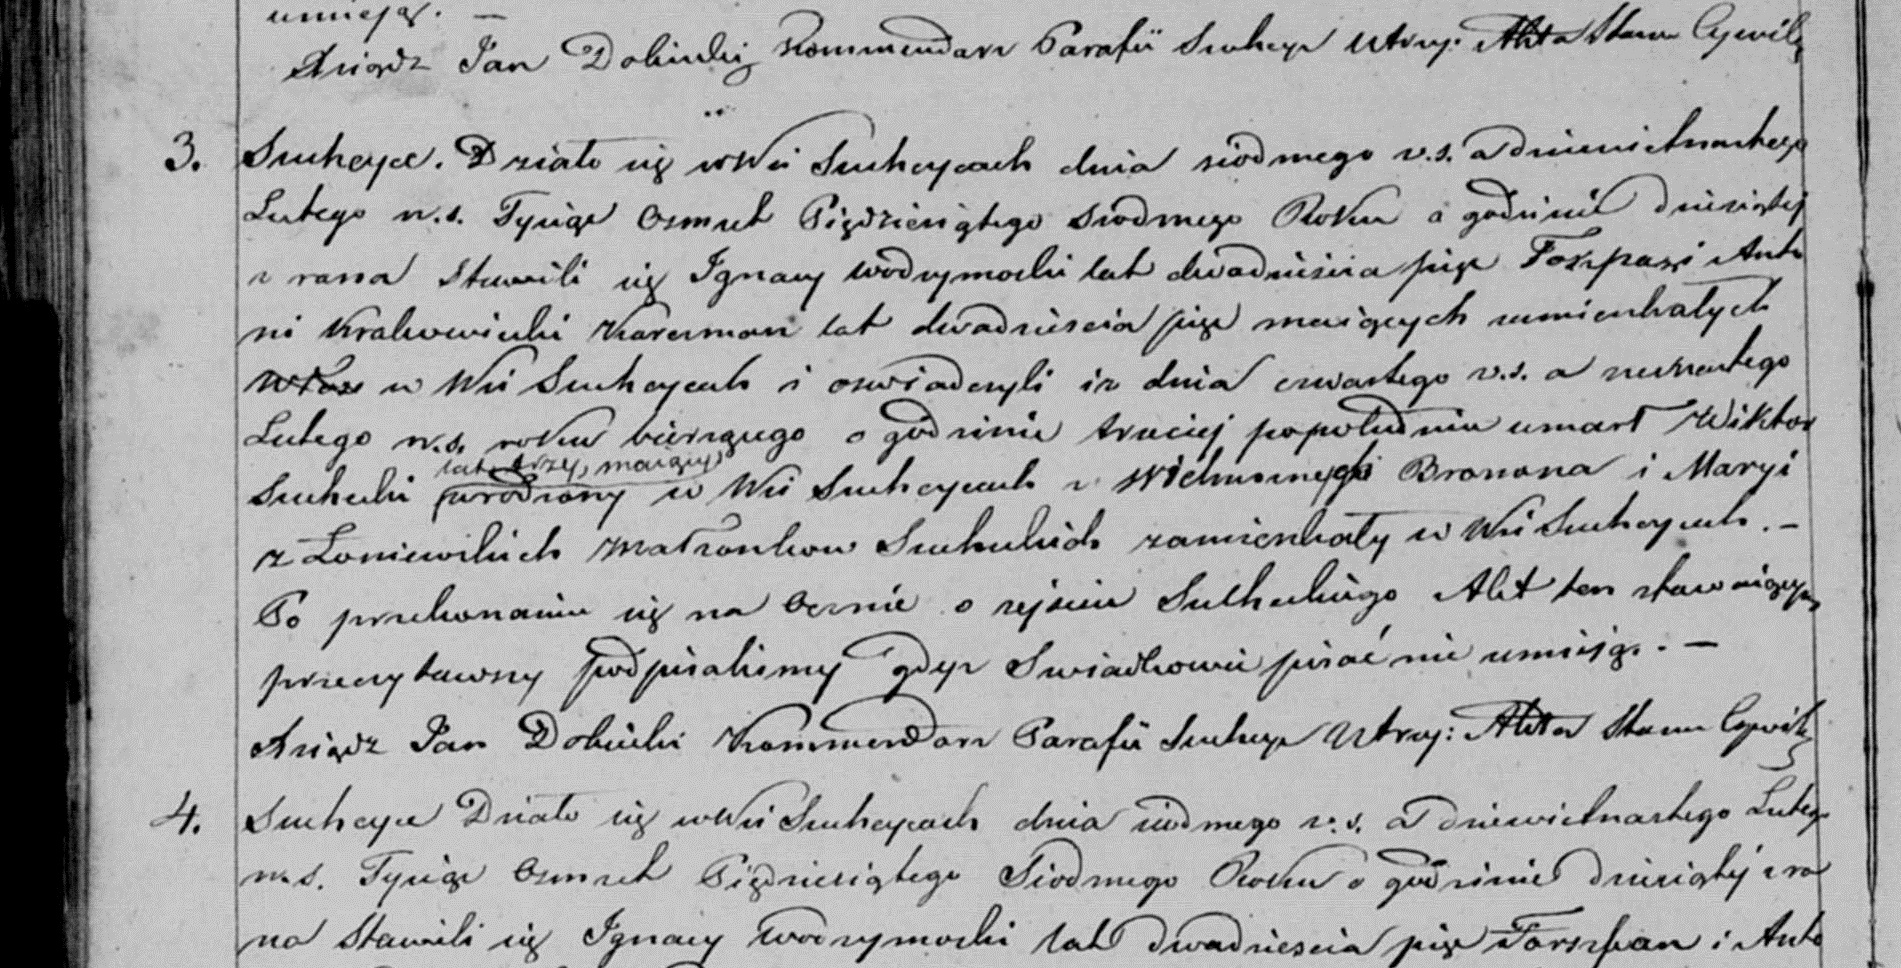 umieją. —
Xsiądz Jan Doliński Kommendarz Parafii Suchcyce Utrzy: Akta Stanu Cywil:
3. Suchcyce. Działo się w Wsi Suchcycach dnia siodmego v.s. a dziewietnastego
Lutego n.s. Tysiąc Osmset Pięździesiątego Siodmego Roku o godzinie dziesiątej
z rana Stawili się Ignacy Wodzymoski lat dwadzieścia pięc i Anto
ni Krakowiecki Karczmarz lat dwadziescia pięc maiących zamieszkałych
w Wsi Suchcycach i oswiadczyli iz dnia czwartego v.s. a szesnastego
Lutego n.s. roku bieżącego o godzinie trzeciej popołudniu umarł Wiktor
lat trzy, maiący
Suchcki urodzony w Wsi Suchcycach z Bronona i Maryi
z Łoniewskich Małżonkow Suchckich zamieszkały w Wsi Suchcycach. —
Po przekonaniu się na Ocznie o zejsciu Suchckiego Akt ten stawaiącym
przeczytawszy podpisalismy gdyz Swiadkowie pisać nie umieją. —
Xsiądz Jan Doliński Kommendarz Parafii Suchcyce Utrzy: Akta Stanu Cywil:
4. Suchcyce Działo się w Wsi Suchcycach dnia siodmego v.s. a dziewietnastego Lutego
n.s. Tysiąc Osmset Pięździesiątego Siodmego Roku o godzinie dziesiątej z ra
na Stawili się Ignacy Wodzymoski lat dwadziescia pięc Forszpan i Anto